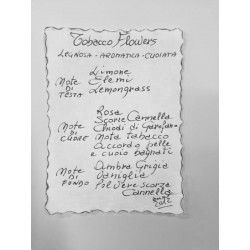 Tobacco Flowers
LEGNOSA - AROMATICA - CUOIATA
NOTE DI TESTA
Limone
Elemi
Lemongrass
NOTE DI CUORE
Rosa
Scorie Cannella
Chiodi di Garofano
Nota Tabacco
Accordo pelle
e cuoio bagnati
NOTE DI FONDO
Ambra Grigia
Vaniglia
Polvere scorza
Cannella